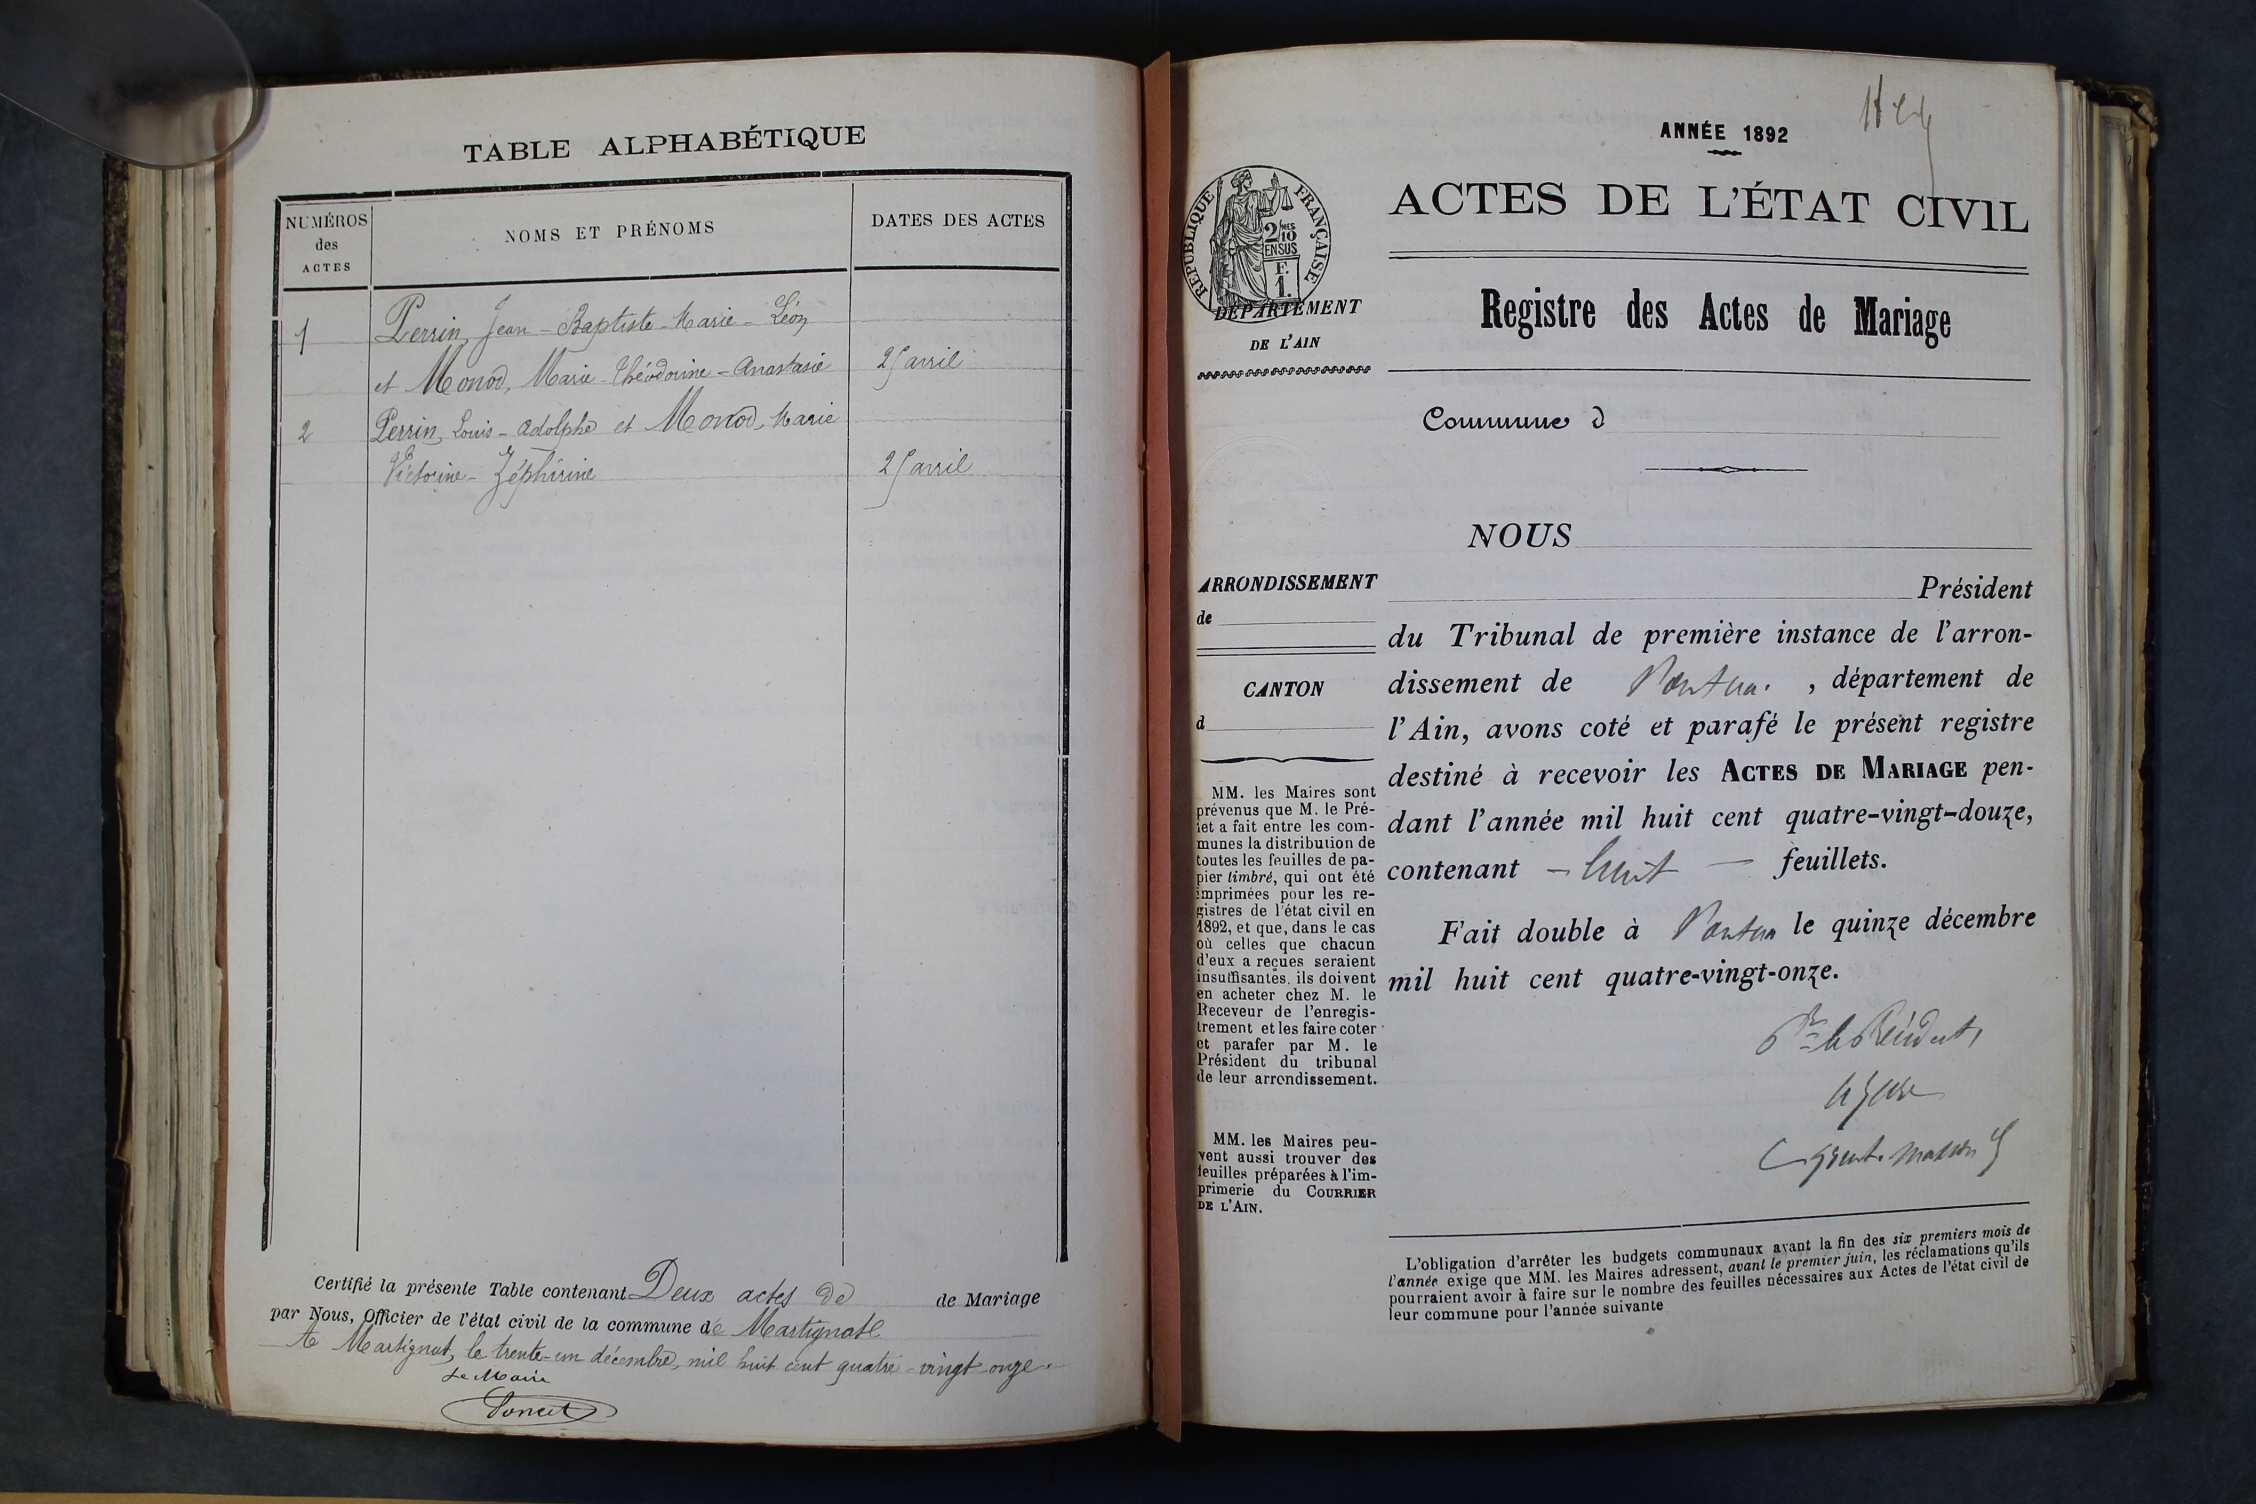 TABLE ALPHABÉTIQUE
NUMÉROS
des
ACTES
NOMS ET PRÉNOMS
DATES DES ACTES
1
Perrin, Jean-Baptiste-Marie-Léon
et Monod, Marie-Théodorine-Anastasie
25 avril
2
Perrin, Louis-Adolphe et Monod, Marie
Victorine-Zéphirine
25 avril
Certifié la présente Table contenant Deux actes de de Mariage
par Nous, Officier de l'état civil de la commune de Martignat
A Martignat, le trente-un décembre, mil huit cent quatre-vingt onze.
Le Maire
Poncet
ANNÉE 1892
RÉPUBLIQUE FRANÇAISE
2/10 MES
EN SUS
F.
1.
ACTES DE L'ÉTAT CIVIL
Registre des Actes de Mariage
DÉPARTEMENT
DE L'AIN
Commune d
NOUS
Président
du Tribunal de première instance de l'arron-
dissement de Nantua. , département de
l'Ain, avons coté et parafé le présent registre
destiné à recevoir les ACTES DE MARIAGE pen-
dant l'année mil huit cent quatre-vingt-douze,
contenant - huit - feuillets.
Fait double à Nantua le quinze décembre
mil huit cent quatre-vingt-onze.
Pr le Président,
le juge
ARRONDISSEMENT
de
CANTON
d
MM. les Maires sont
prévenus que M. le Pré-
fet a fait entre les com-
munes la distribution de
toutes les feuilles de pa-
pier timbré, qui ont été
imprimées pour les re-
gistres de l'état civil en
1892, et que, dans le cas
où celles que chacun
d'eux a reçues seraient
insuffisantes, ils doivent
en acheter chez M. le
Receveur de l'enregis-
trement et les faire coter
et parafer par M. le
Président du tribunal
de leur arrondissement.
MM. les Maires peu-
vent aussi trouver des
feuilles préparées à l'im-
primerie du COURRIER
DE L'AIN.
L'obligation d'arrêter les budgets communaux avant la fin des six premiers mois de
l'année exige que MM. les Maires adressent, avant le premier juin, les réclamations qu'ils
pourraient avoir à faire sur le nombre des feuilles nécessaires aux Actes de l'état civil de
leur commune pour l'année suivante